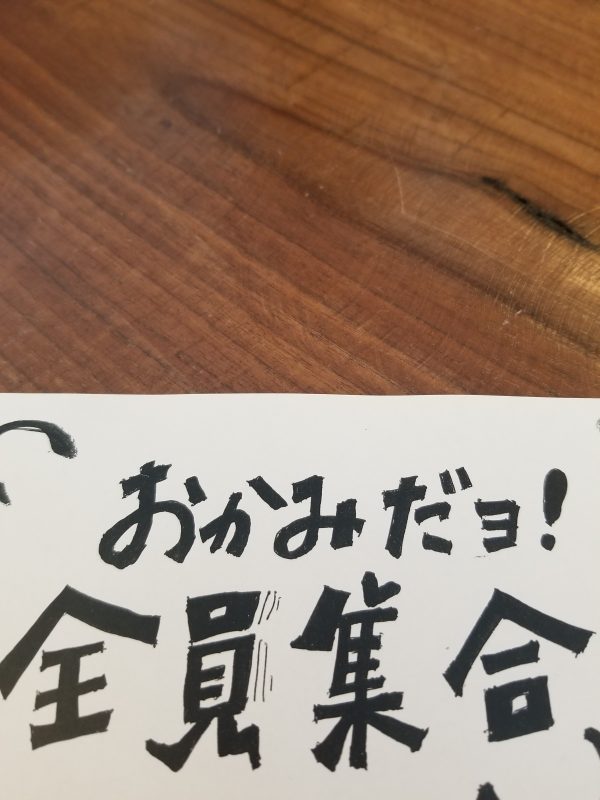 おかみだョ!
全員集合